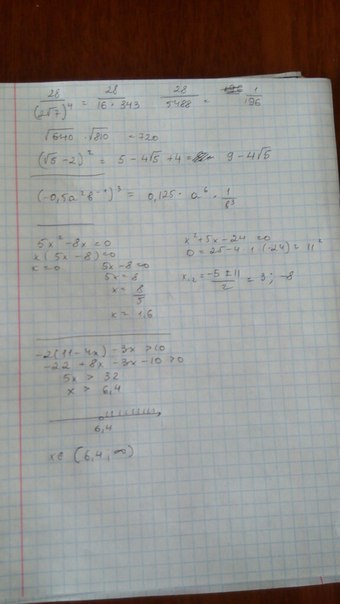 28/(2√7)⁴ = 28/(16 · 343) 28/5488 = 1/196
√640 · √810 = 720
(√5 - 2)² = 5 - 4√5 + 4 = 9 - 4√5
(-0,5a²b⁻¹)³ = 0,125 · a⁶ · 1/b³
5x² - 8x = 0
x(5x - 8) = 0
x = 0 5x - 8 = 0
5x = 8
x = 8/5
x = 1,6
x² + 5x - 24 = 0
D = 25 - 4 · (-24) = 11²
x₁,₂ = (-5 ± 11)/2 = 3 ; -8
-2(11 - 4x) - 3x > 10
-22 + 8x - 3x - 10 > 0
5x > 32
x > 6,4
6,4
x ∈ (6,4 ; ∞)